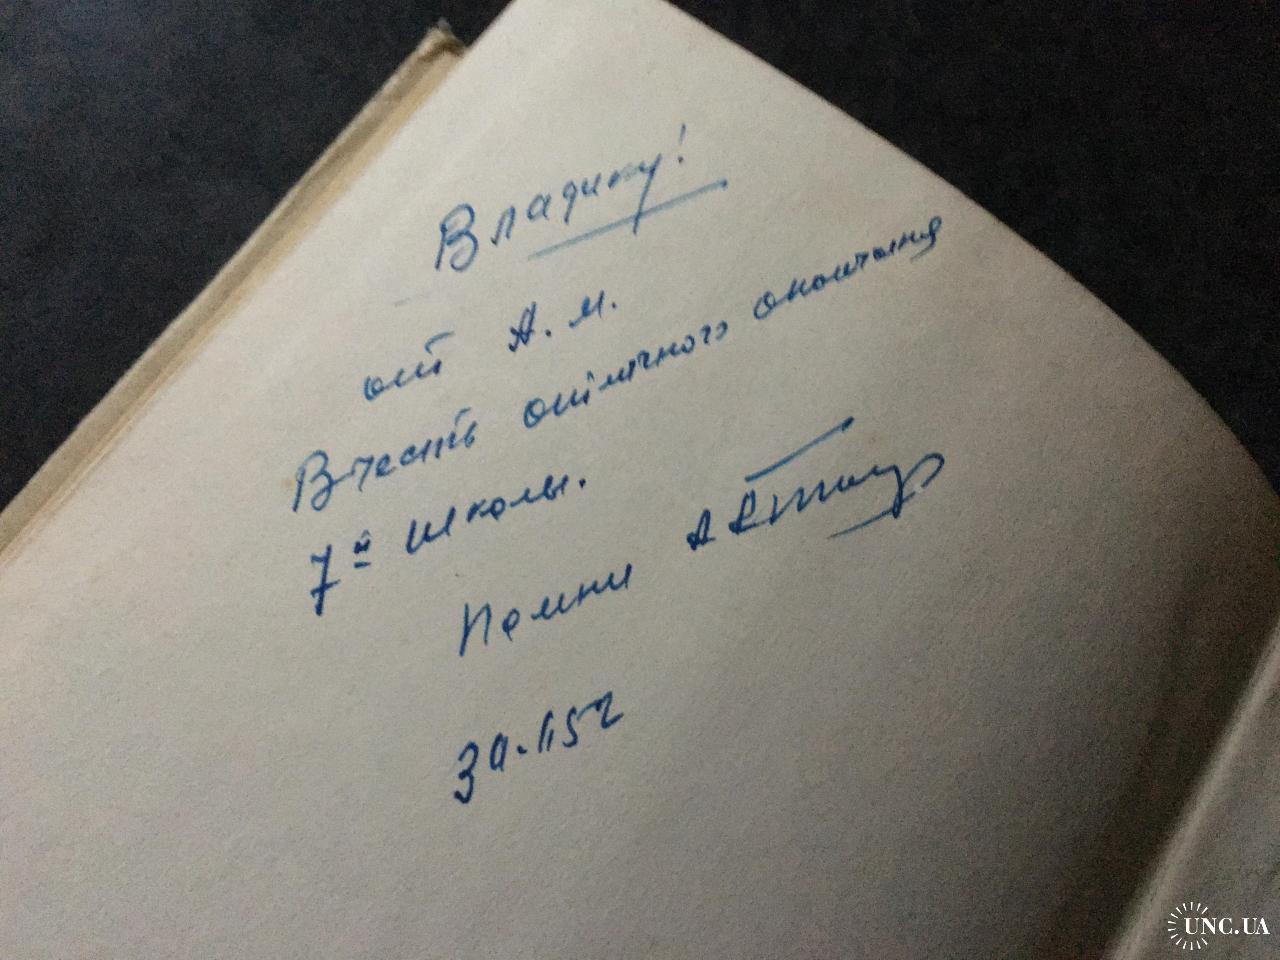 Владику!
от А. М.
В честь отличного окончания
7й школы.
Помни
UNC.UA